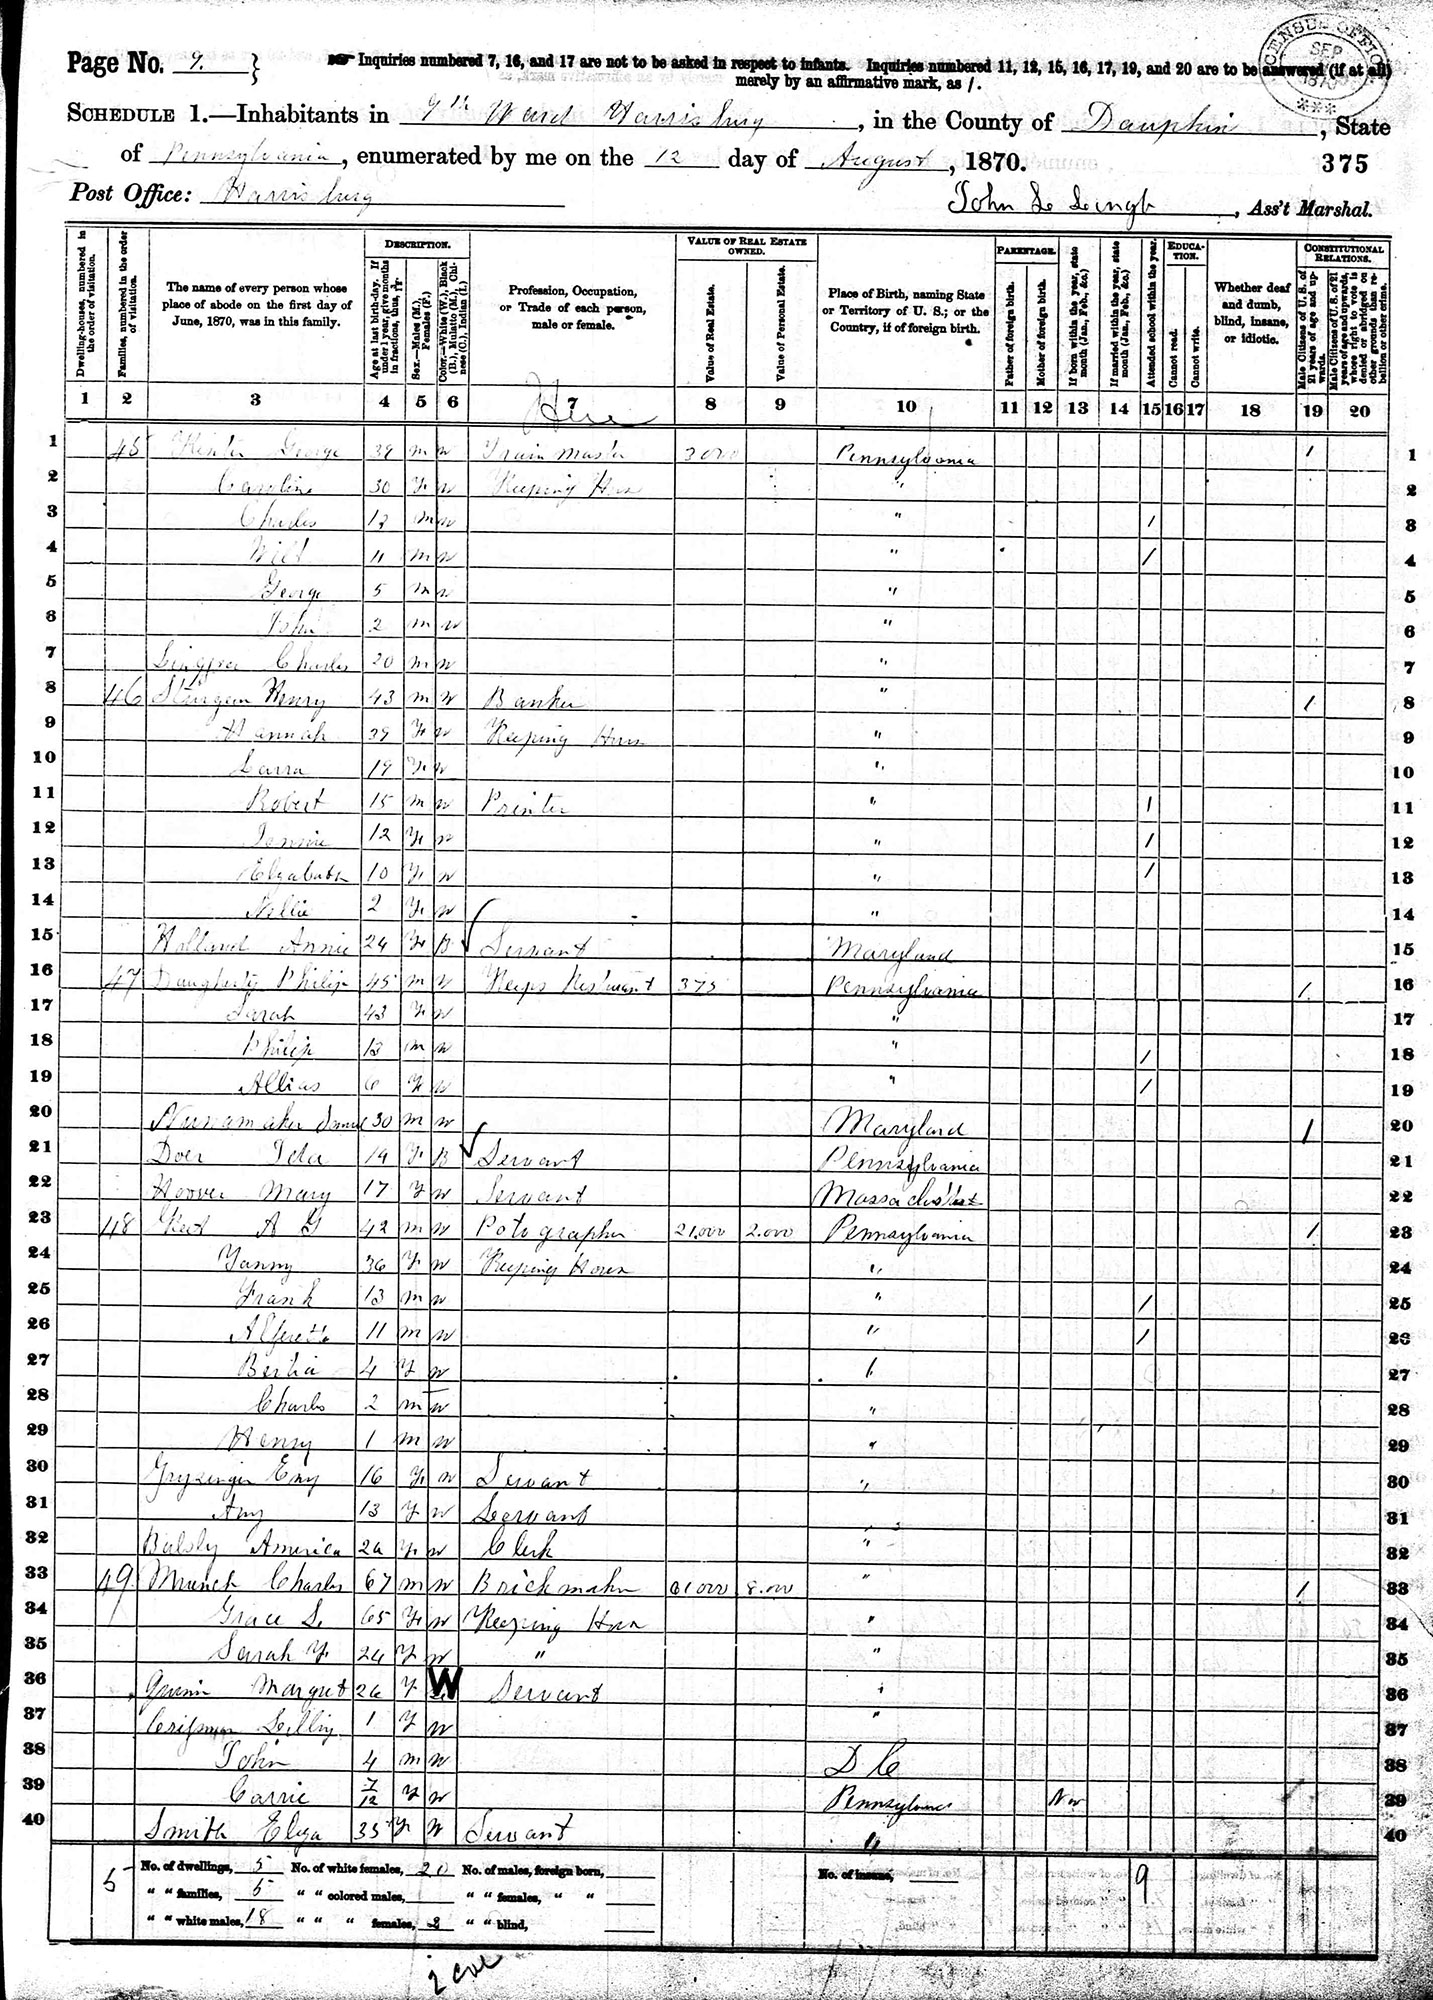 Page No. 9. } Inquiries numbered 7, 16, and 17 are not to be asked in respect to infants. Inquiries numbered 11, 12, 15, 16, 17, 19, and 20 are to be answered (if at all)
merely by an affirmative mark, as /.
CENSUS OFFICE SEP 1870
SCHEDULE 1.—Inhabitants in 9th Ward Harrisburg, in the County of Dauphin, State
of Pennsylvania, enumerated by me on the 12 day of August, 1870. 375
Post Office: Harrisburg John , Ass't Marshal.
Dwelling-houses, numbered in the order of visitation.
Families, numbered in the order of visitation.
The name of every person whose place of abode on the first day of June, 1870, was in this family.
DESCRIPTION.
Age at last birth-day. If under 1 year, give months in fractions, thus, 3/12.
Sex.—Males (M.), Females (F.)
Color.—White (W.), Black (B.), Mulatto (M.), Chinese (C.), Indian (I.)
Profession, Occupation, or Trade of each person, male or female.
VALUE OF REAL ESTATE OWNED.
Value of Real Estate.
Value of Personal Estate.
Place of Birth, naming State or Territory of U. S.; or the Country, if of foreign birth.
PARENTAGE.
Father of foreign birth.
Mother of foreign birth.
If born within the year, state month (Jan., Feb., &c.)
If married within the year, state month (Jan., Feb., &c.)
Attended school within the year.
EDUCATION.
Cannot read.
Cannot write.
Whether deaf and dumb, blind, insane, or idiotic.
CONSTITUTIONAL RELATIONS.
Male Citizens of U. S. of 21 years of age and upwards.
Male Citizens of U. S. of 21 years of age and upwards, whose right to vote is denied or abridged on other grounds than rebellion or other crime.
1 2 3 4 5 6 7 8 9 10 11 12 13 14 15 16 17 18 19 20
Here
1 45 George 39 m w Train master 3000 Pennsylvania / 1
2 Caroline 30 F w Keeping House " 2
3 Charles 13 m w " / 3
4 Will 11 m w " / 4
5 George 5 m w " 5
6 John 2 m w " 6
7 Charles 20 m w " 7
8 46 Sturgeon Henry 43 m w Banker " / 8
9 Hannah 39 F w Keeping House " 9
10 Laura 19 F w " 10
11 Robert 15 m w Printer " / 11
12 Jennie 12 F w " / 12
13 Elizabeth 10 F w " / 13
14 Nellie 2 F w " 14
15 Holland Annie 24 F B Servant Maryland 15
16 47 Daugherty Philip 45 m w Keeps Resturant 375 Pennsylvania / 16
17 Sarah 43 F w " 17
18 Philip 13 m w " / 18
19 Allias 6 F w " / 19
20 Nunamaker 30 m w Maryland / 20
21 Doer Ida 19 F B Servant Pennsylvania 21
22 Hoover Mary 17 F w Servant 22
23 48 Keet A G 42 m w Potographer 21,000 2.000 Pennsylvania / 23
24 Fanny 36 F w Keeping House " 24
25 Frank 13 m w " / 25
26 11 m w " / 26
27 Bertia 4 F w " 27
28 Charls 2 m w " 28
29 Henry 1 m w " 29
30 16 F w Servant " 30
31 Amy 13 F w Servant " 31
32 America F w Clerk " 32
33 49 Muench Charles 67 m w Brickmaker 61000 8.000 " / 33
34 Grace L. 65 F w Keeping House " 34
35 Sarah F. 24 F w " " 35
36 Margret 26 F W Servant " 36
37 1 F w " 37
38 John 4 m w D C 38
39 Carrie 7/12 F w Pennsylvania Nov 39
40 Smith Eliza 35 F W Servant " 40
5 No. of dwellings, 5 No. of white females, 20 No. of males, foreign born, No. of insane, 9
" " families, 5 " " colored males, " " females, " "
" " white males, 18 " " " females, 2 " " blind,
2 col